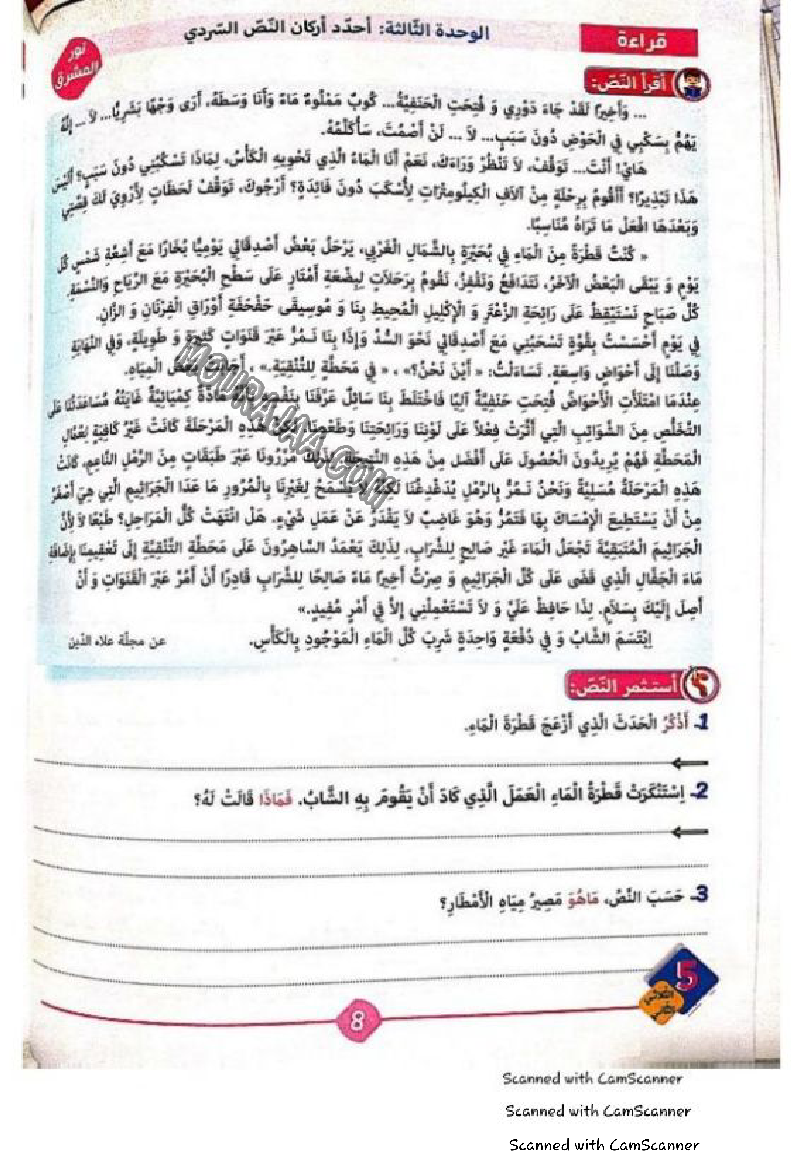 الوحدة الثالثة: أحدّد أركان النّصّ السّردي
قراءة
نور المشرق
أقرأ النّصّ:
... وَأَخِيرًا لَقَدْ جَاءَ دَوْرِي وَ فُتِحَتِ الْحَنَفِيَّةُ... كُوبٌ مَمْلُوءٌ مَاءً وَأَنَا وَسَطَهُ، أَرَى وَجْهًا بَشَرِيًّا... لاَ ... إِنَّهُ
يَهُمُّ بِسَكْبِي فِي الْحَوْضِ دُونَ سَبَبٍ... لاَ ... لَنْ أَصْمُتَ، سَأُكَلِّمُهُ.
هَايْ! أَنْتَ... تَوَقَّفْ، لاَ تَنْظُرْ وَرَاءَكَ، نَعَمْ أَنَا الْمَاءُ الَّذِي تَحْوِيهِ الْكَأْسُ، لِمَاذَا تَسْكُبُنِي دُونَ سَبَبٍ؟ أَلَيْسَ
هَذَا تَبْذِيرًا؟ أَأَقُومُ بِرِحْلَةٍ مِنْ آلاَفِ الْكِيلُومِتْرَاتِ لِأُسْكَبَ دُونَ فَائِدَةٍ؟ أَرْجُوكَ، تَوَقَّفْ لَحَظَاتٍ لِأَرْوِيَ لَكَ قِصَّتِي
وَبَعْدَهَا افْعَلْ مَا تَرَاهُ مُنَاسِبًا.
« كُنْتُ قَطْرَةً مِنَ الْمَاءِ فِي بُحَيْرَةٍ بِالشَّمَالِ الْغَرْبِي، يَرْحَلُ بَعْضُ أَصْدِقَائِي يَوْمِيًّا بُخَارًا مَعَ أَشِعَّةِ شَمْسِ كُلِّ
يَوْمٍ وَ يَبْقَى الْبَعْضُ الْآخَرُ، نَتَدَافَعُ وَنَقْفِزُ، نَقُومُ بِرَحَلاَتٍ لِبِضْعَةِ أَمْتَارٍ عَلَى سَطْحِ الْبُحَيْرَةِ مَعَ الرِّيَاحِ وَالنَّسْمَةِ.
كُلَّ صَبَاحٍ نَسْتَيْقِظُ عَلَى رَائِحَةِ الزَّعْتَرِ وَ الْإِكْلِيلِ الْمُحِيطِ بِنَا وَ مُوسِيقَى حَفْحَفَةِ أَوْرَاقِ الْفِرْنَانِ وَ الزَّانِ.
فِي يَوْمٍ أَحْسَسْتُ بِقُوَّةٍ تَسْحَبُنِي مَعَ أَصْدِقَائِي نَحْوَ السَّدِّ وَإِذَا بِنَا نَـمُرُّ عَبْرَ قَنَوَاتٍ كَثِيرَةٍ وَ طَوِيلَةٍ، وَفِي النِّهَايَةِ
وَصَلْنَا إِلَى أَحْوَاضٍ وَاسِعَةٍ. تَسَاءَلْتُ: « أَيْنَ نَحْنُ؟» ، « فِي مَحَطَّةٍ لِلتَّنْقِيَةِ.» ، أَجَابَتْ بَعْضُ الْمِيَاهِ.
عِنْدَمَا امْتَلَأَتِ الْأَحْوَاضُ فُتِحَتِ حَنَفِيَّةٌ آلِيًا فَاخْتَلَطَ بِنَا سَائِلٌ عَرَّفَنَا بِنَفْسِهِ بِأَنَّهُ مَادَّةٌ كِمْيَائِيَّةٌ غَايَتُهُ مُسَاعَدَتُنَا عَلَى
التَّخَلُّصِ مِنَ الشَّوَائِبِ الَّتِي أَثَّرَتْ فِعْلاً عَلَى لَوْنِنَا وَرَائِحَتِنَا وَطَعْمِنَا، لَكِنَّ هَذِهِ الْمَرْحَلَةَ كَانَتْ غَيْرَ كَافِيَةٍ لِعُمَّالِ
الْمَحَطَّةِ فَهُمْ يُرِيدُونَ الْحُصُولَ عَلَى أَفْضَلَ مِنْ هَذِهِ النَّتِيجَةِ، لِذَلِكَ مُرُورُنَا عَبْرَ طَبَقَاتٍ مِنَ الرَّمْلِ النَّاعِمِ، كَانَتْ
هَذِهِ الْمَرْحَلَةُ مُسَلِّيَةً وَنَحْنُ نَـمُرُّ بِالرَّمْلِ يُدَغْدِغُنَا لَكِنَّهُ لاَ يَسْمَحُ لِغَيْرِنَا بِالْمُرُورِ مَا عَدَا الْجَرَاثِيمَ الَّتِي هِيَ أَصْغَرُ
مِنْ أَنْ يَسْتَطِيعَ الْإِمْسَاكَ بِهَا فَتَمُرُّ وَهُوَ غَاضِبٌ لاَ يَقْدَرُ عَنْ عَمَلِ شَيْءٍ. هَلْ انْتَهَتْ كُلُّ الْمَرَاحِلِ؟ طَبْعًا لاَ لِأَنَّ
الْجَرَاثِيمَ الْمُتَبَقِّيَةَ تَجْعَلُ الْمَاءَ غَيْرَ صَالِحٍ لِلشَّرَابِ، لِذَلِكَ يَعْمَدُ السَّاهِرُونَ عَلَى مَحَطَّةِ التَّنْقِيَةِ إِلَى تَعْقِيمِنَا بِإِضَافَةِ
مَاءِ الْجَفَّالِ الَّذِي قَضَى عَلَى كُلِّ الْجَرَاثِيمِ وَ صِرْتُ أَخِيرًا مَاءً صَالِحًا لِلشَّرَابِ قَادِرًا أَنْ أَمُرَّ عَبْرَ الْقَنَوَاتِ وَ أَنْ
أَصِلَ إِلَيْكَ بِسَلاَمٍ. لِذَا حَافِظْ عَلَيَّ وَ لاَ تَسْتَعْمِلْنِي إِلاَّ فِي أَمْرٍ مُفِيدٍ.»
اِبْتَسَمَ الشَّابُ وَ فِي دُفْعَةٍ وَاحِدَةٍ شَرِبَ كُلَّ الْمَاءِ الْمَوْجُودِ بِالْكَأْسِ.
عن مجلّة علاء الدّين
MOURAJAA.COM
أستثمر النّصّ:
1- أَذْكُرُ الْحَدَثَ الَّذِي أَزْعَجَ قَطْرَةَ الْمَاءِ.
2- اِسْتَنْكَرَتْ قَطْرَةُ الْمَاءِ الْعَمَلَ الَّذِي كَادَ أَنْ يَقُومَ بِهِ الشَّابُ. فَمَاذَا قَالَتْ لَهُ؟
3- حَسَبَ النَّصِّ، مَاهُوَ مَصِيرُ مِيَاهِ الْأَمْطَارِ؟
5
8
Scanned with CamScanner
Scanned with CamScanner
Scanned with CamScanner